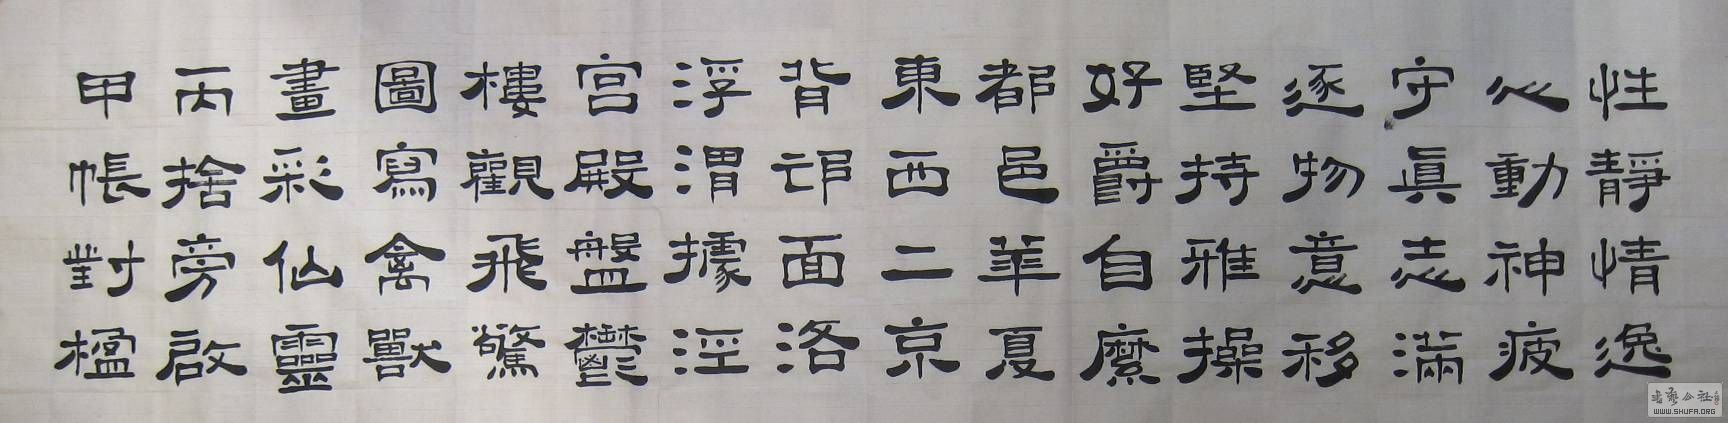 性靜情逸
心動神疲
守真志滿
逐物意移
堅持雅操
好爵自縻
都邑華夏
東西二京
背邙面洛
浮渭據涇
宮殿盤鬱
樓觀飛驚
圖寫禽獸
畫彩仙靈
丙捨旁啟
甲帳對楹
WWW.SHUFA.ORG